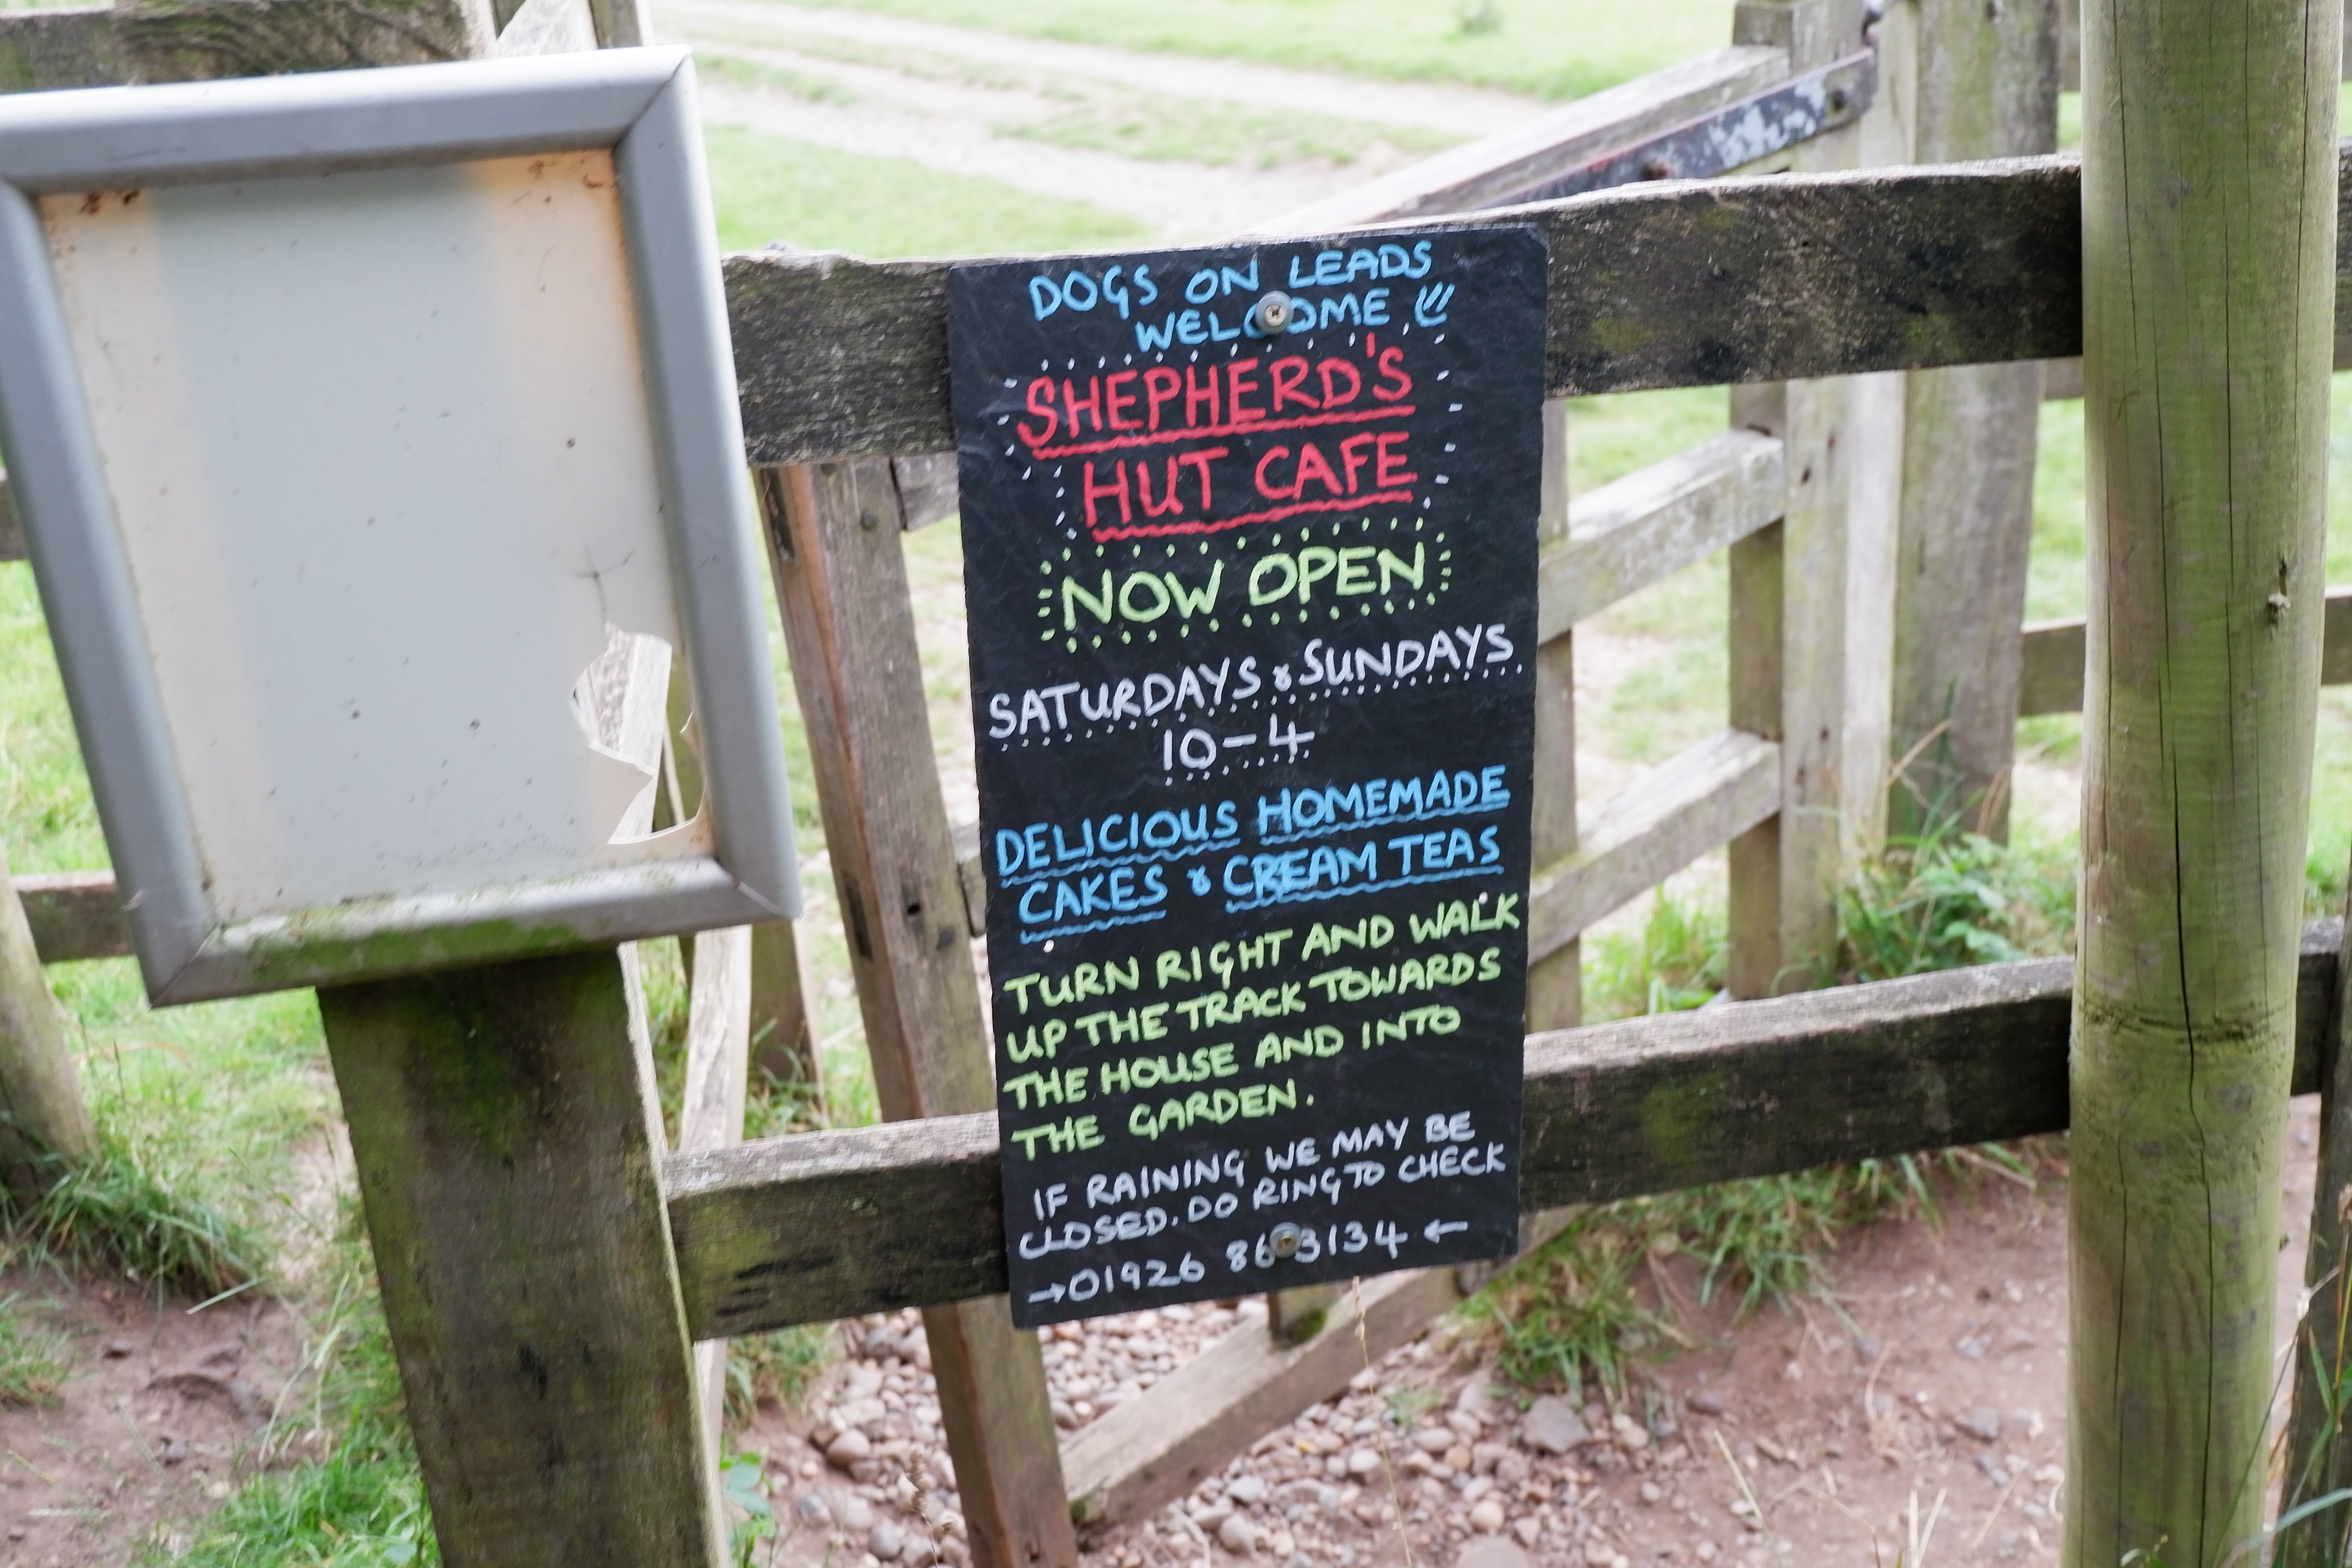 DOGS ON LEADS
WELCOME
SHEPHERD'S
HUT CAFE
NOW OPEN
SATURDAYS & SUNDAYS
10-4
DELICIOUS HOMEMADE
CAKES & CREAM TEAS
TURN RIGHT AND WALK
UP THE TRACK TOWARDS
THE HOUSE AND INTO
THE GARDEN.
IF RAINING WE MAY BE
CLOSED. DO RING TO CHECK
→01926 863134 ←